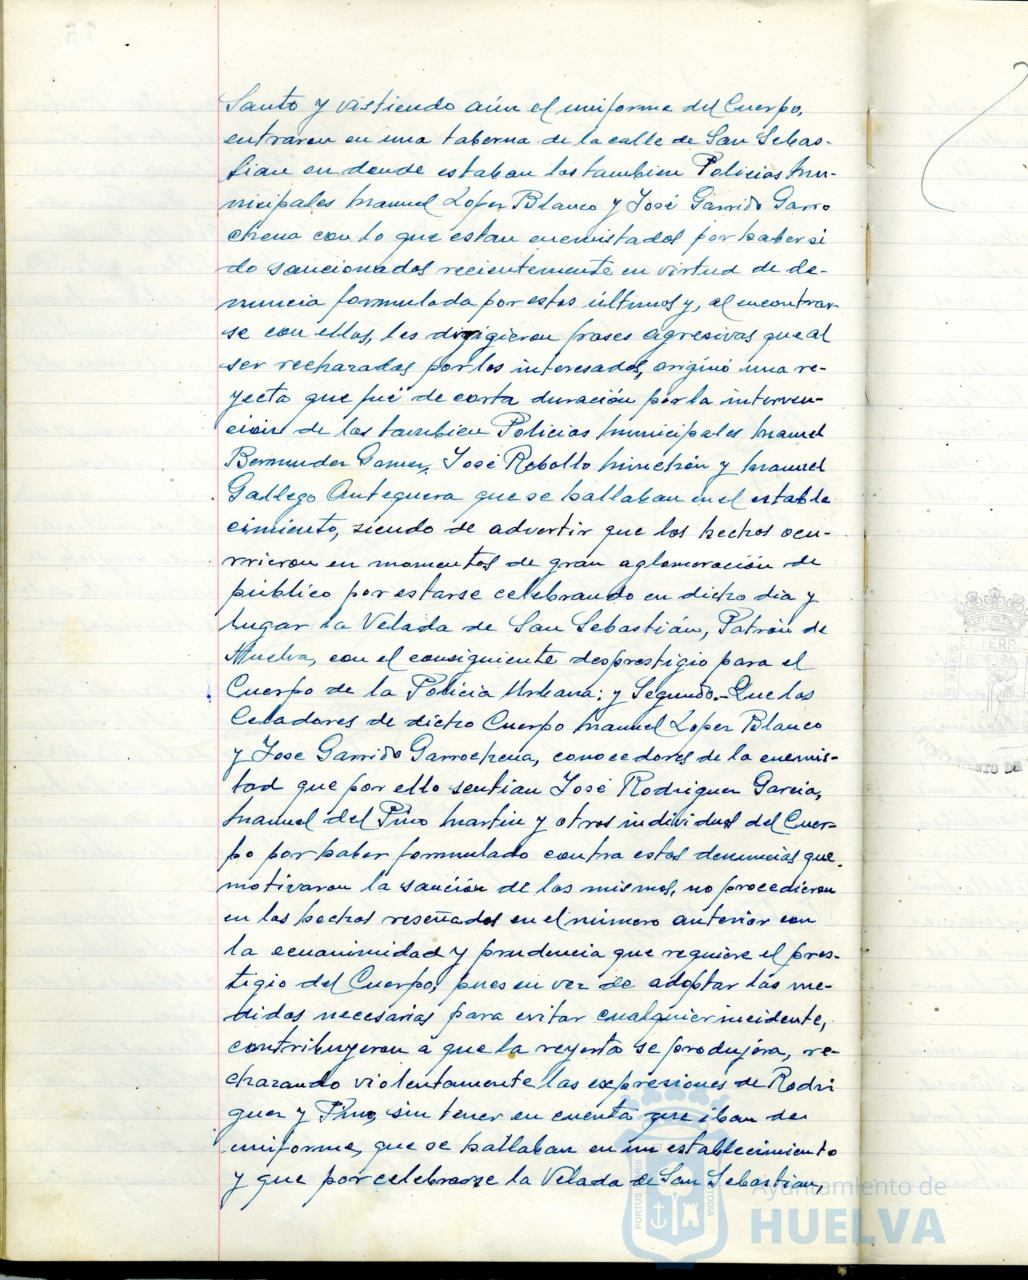 Santo y vistiendo aún el uniforme del Cuerpo,
entraron en una taberna de la calle de San Sebas-
tian en donde estaban los tambien Policias Mu-
nicipales Manuel Lopez Blanco y José Garrido Garro
chena con lo que estan enemistados por haber si
do sancionados recientemente en virtud de de-
nuncia formulada por estos últimos y, al encontrar-
se con ellos, les dirigieron frases agresivas que al
ser rechazadas por los interesados, originó una re-
yecta que fué de corta duración por la interven-
ción de los tambien Policias Municipales Manuel
Bermudez Gomez, José Rebollo Minchón y Manuel
Gallego Antequera que se hallaban en el estable
cimiento, siendo de advertir que los hechos ocu-
rrieron en momentos de gran aglomoración de
público por estarse celebrando en dicho dia y
lugar la Velada de San Sebastián, Patrón de
Huelva, con el consiguiente desprestigio para el
Cuerpo de la Policia Urbana; y Segundo.- Que los
Celadores de dicho Cuerpo Manuel Lopez Blanco
y Jose Garrido Garrochena, conocedores de la enemis-
tad que por ello sentian José Rodriguez Garcia,
Manuel del Pino Martin y otros individuos del Cuer-
po por haber formulado contra estos denuncias que
motivaron la sanción de los mismos, no procedieron
en los hechos reseñados en el número anterior con
la ecuanimidad y prudencia que requiere el pres-
tigio del Cuerpo, pues en vez de adoptar las me-
didas necesarias para evitar cualquier incidente,
contribuyeron a que la reyerta se produjera, re-
chazando violentamente las expresiones de Rodri
guez y Pino, sin tener en cuenta que iban de
uniforme, que se hallaban en un establecimiento
y que por celebrarse la Velada de San Sebastian,
Ayuntamiento de
HUELVA